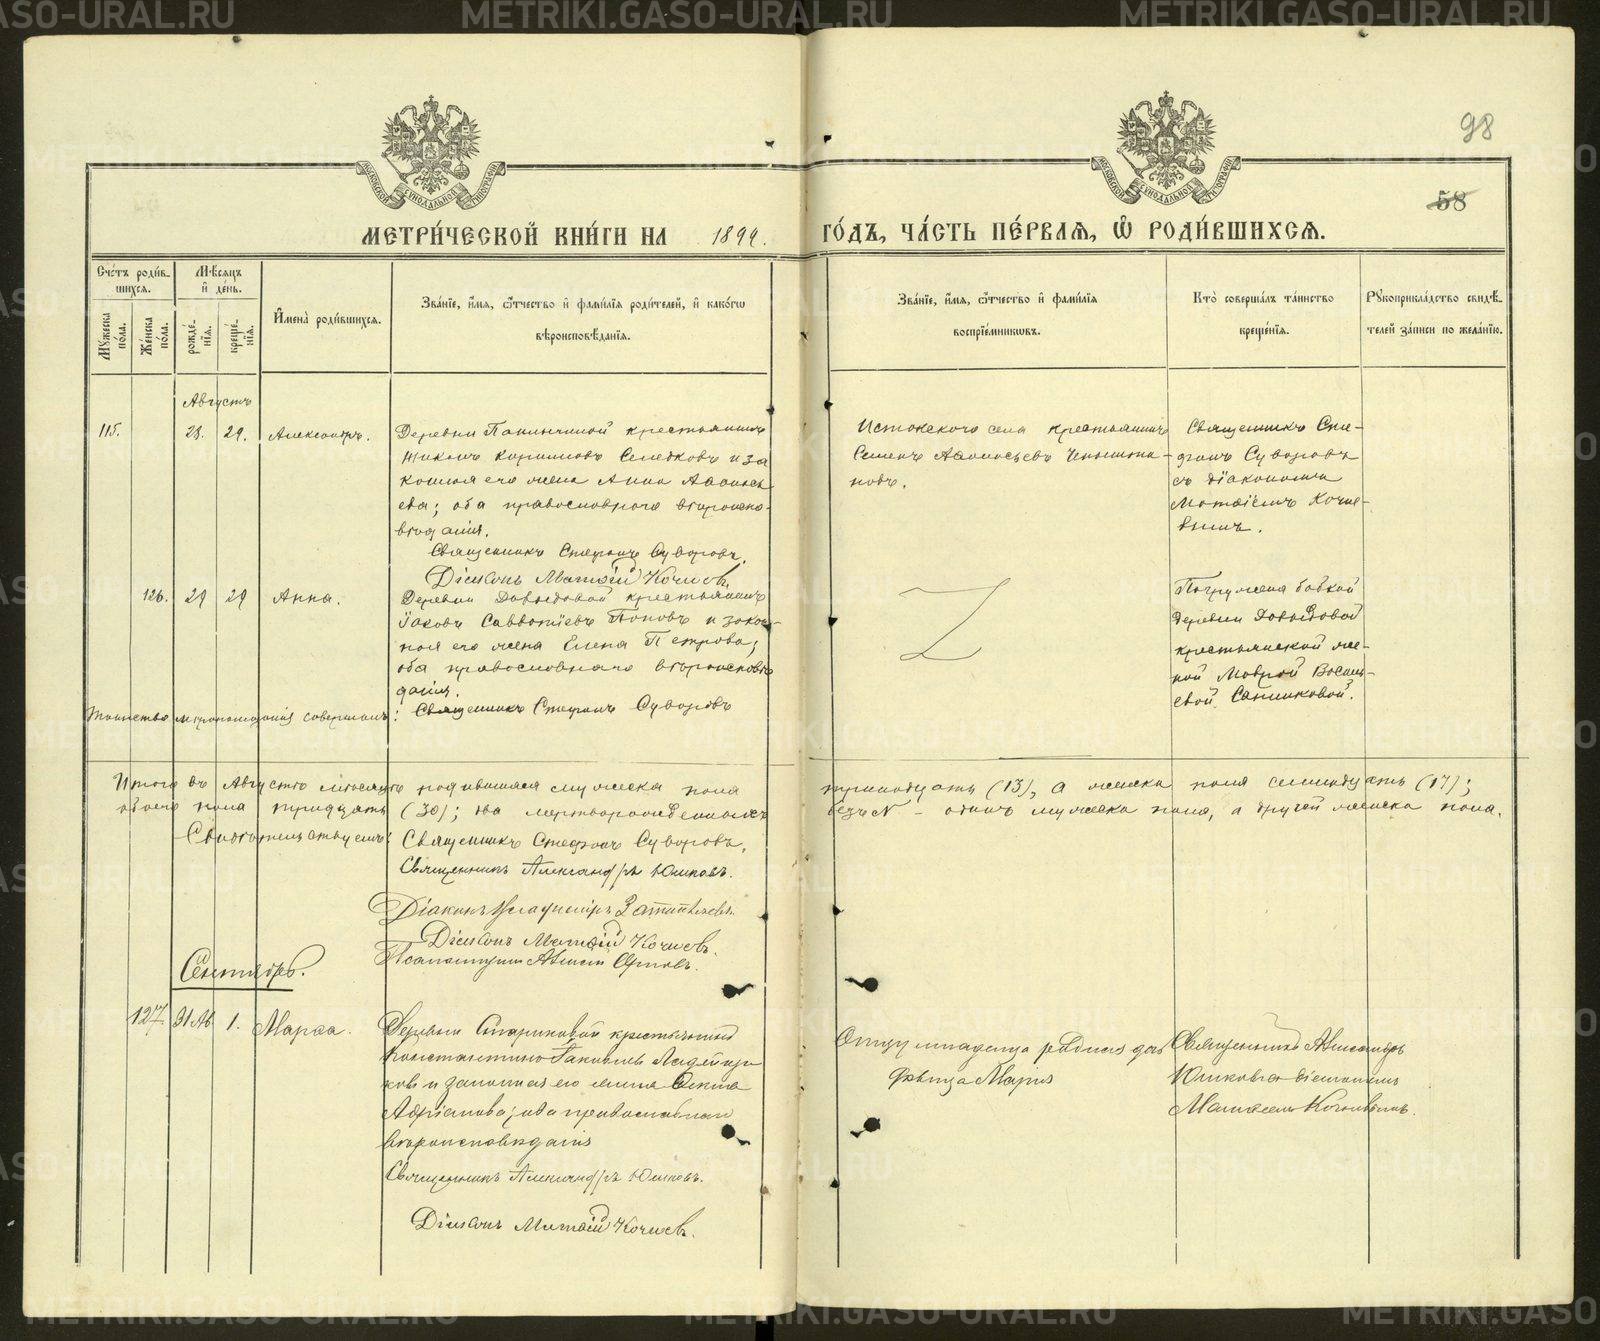 METRIKI.GASO-URAL.RU
98
58
МОСКОВСКОЙ СѴНОДАЛЬНОЙ ТИПОГРАФІИ
МЕТРИ́ЧЕСКОЙ КНИ́ГИ НА 1899.
ГО́ДЪ, ЧА́СТЬ ПЕ́РВАЯ, Ѡ҆ РОДИ́ВШИХСЯ.
Сче́тъ роди́в-
шихся.
Мꙋ́жеска по́ла.
Же́нска по́ла.
Мѣ́сяцъ
и҆ де́нь.
рожде́нїя.
креще́нїя.
И҆мена̀ роди́вшихся.
Зва́нїе, и҆́мя, ѻ҆́тчество и҆ фами́лїя роди́телей, и҆ како́гѡ
вѣроисповѣ́данїя.
Зва́нїе, и҆́мя, ѻ҆́тчество и҆ фами́лїя
воспрїе́мникѡвъ.
Кто̀ соверша́лъ та́инство
креще́нїя.
Рꙋкоприкла́дство свидѣ́-
телей за́писи по жела́нїю.
Августъ
115.
28. 29.
Александръ.
Деревни крестьянинъ
и за
конная его жена Анна Аѳанась
ева; оба православнаго вѣроиспо-
вѣданія.
Священникъ Стефанъ Суворовъ.
Діаконъ Матѳій Кочневъ.
Истокскаго села крестьянинъ
Семенъ Аѳанасьевъ
новъ.
Священникъ Сте-
фанъ Суворовъ
съ діакономъ
Матѳіемъ Кочне-
вымъ.
126.
29 29
Анна.
Деревни Давыдовой крестьянинъ
Іаковъ Савватіевъ Поповъ и закон-
ная его жена Елена Петрова;
оба православнаго вѣроисповѣ
данія.
Таинство мѵропомазанія совершалъ: Священникъ Стефанъ Суворовъ
Погружена бабкой
деревни Давыдовой
крестьянской же-
ной Маврой Василь-
евой
Итого въ Августѣ мѣсяцѣ родившихся мужеска пола
тринадцать (13), а женска пола семнадцать (17);
обоего пола тридцать (30); два мертворожденныхъ
безъ N - одинъ мужеска пола, а другой женска пола.
Свидѣтельствуемъ: Священникъ Стефанъ Суворовъ,
Священникъ Александръ Юшковъ.
Діаконъ Владиміръ
Діаконъ Матѳій Кочневъ.
Псаломщикъ
Сентябрь.
127. 31 Ав 1.
Марѳа.
Деревни крестьянинъ
Константинъ Іаковлевъ
ковъ и законная его жена
Адріанова; оба православнаго
вѣроисповѣданія
Священникъ Александръ Юшковъ.
Діаконъ Матѳій Кочневъ.
Отцу младенца родная дочь
дѣвица Марія
Священникъ Александръ
Юшковъ съ діакономъ
Матѳеемъ Кочневымъ.